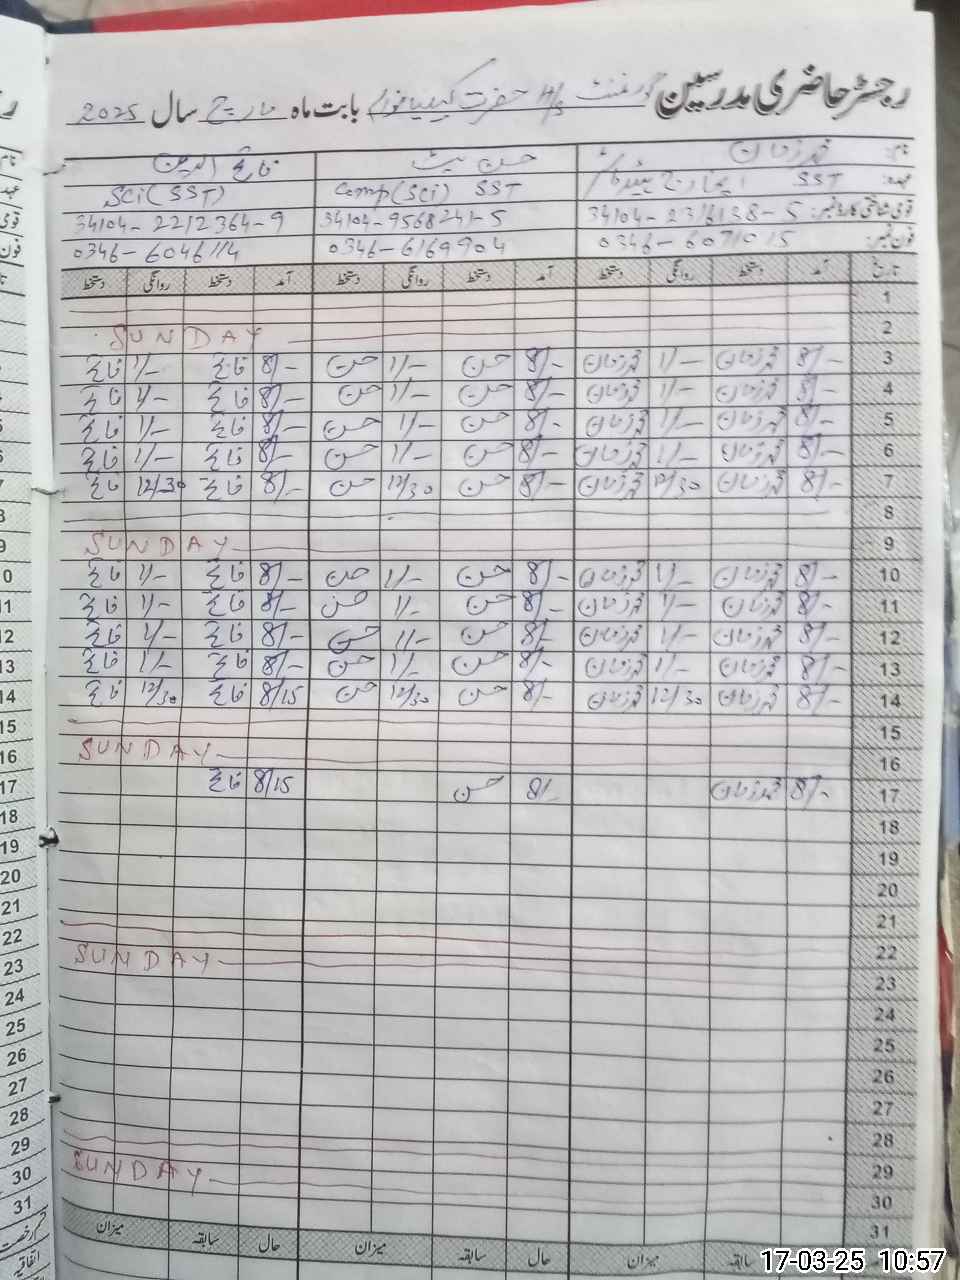 رجسٹر حاضری مدرسین گورنمنٹ H/S حضرت کیلیانوالہ بابت ماہ مارچ سال 2025
نام: محمد زمان حسن بٹ فاتح الدین
عہدہ: SST انچارج ہیڈماسٹر Comp(Sci) SST Sci(SST)
قومی شناختی کارڈ نمبر: 34104-2316138-5 34104-9568241-5 34104-2212364-9
فون نمبر: 0346-6071015 0346-6169904 0346-6046114
تاریخ آمد دستخط روانگی دستخط آمد دستخط روانگی دستخط آمد دستخط روانگی دستخط
1
2 SUNDAY
3 8/- محمد زمان 1/- محمد زمان 8/- حسن 1/- حسن 8/- فاتح 1/- فاتح
4 8/- محمد زمان 1/- محمد زمان 8/- حسن 1/- حسن 8/- فاتح 1/- فاتح
5 8/- محمد زمان 1/- محمد زمان 8/- حسن 1/- حسن 8/- فاتح 1/- فاتح
6 8/- محمد زمان 1/- محمد زمان 8/- حسن 1/- حسن 8/- فاتح 1/- فاتح
7 8/- محمد زمان 12/30 محمد زمان 8/- حسن 12/30 حسن 8/- فاتح 12/30 فاتح
8
9 SUNDAY
10 8/- محمد زمان 1/- محمد زمان 8/- حسن 1/- حسن 8/- فاتح 1/- فاتح
11 8/- محمد زمان 1/- محمد زمان 8/- حسن 1/- حسن 8/- فاتح 1/- فاتح
12 8/- محمد زمان 1/- محمد زمان 8/- حسن 1/- حسن 8/- فاتح 1/- فاتح
13 8/- محمد زمان 1/- محمد زمان 8/- حسن 1/- حسن 8/- فاتح 1/- فاتح
14 8/- محمد زمان 12/30 محمد زمان 8/- حسن 12/30 حسن 8/15 فاتح 12/30 فاتح
15
16 SUNDAY
17 8/- محمد زمان 8/- حسن 8/15 فاتح
18
19
20
21
22
23 SUNDAY
24
25
26
27
28
29
30 SUNDAY
31
حال سابقہ میزان حال سابقہ میزان حال سابقہ میزان
17-03-25 10:57